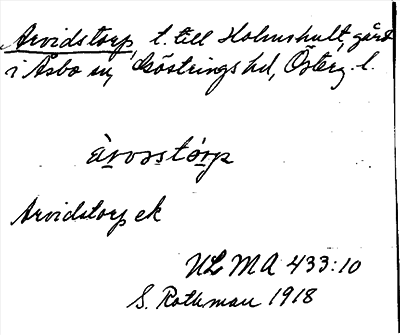 Arvidstorp, t. till Holmshult, gård
i Åsbo sn, Göstrings hd, Österg. l.
àrvstórp
Arvidstorp ek
ULMA 433:10
S. Rothman 1918